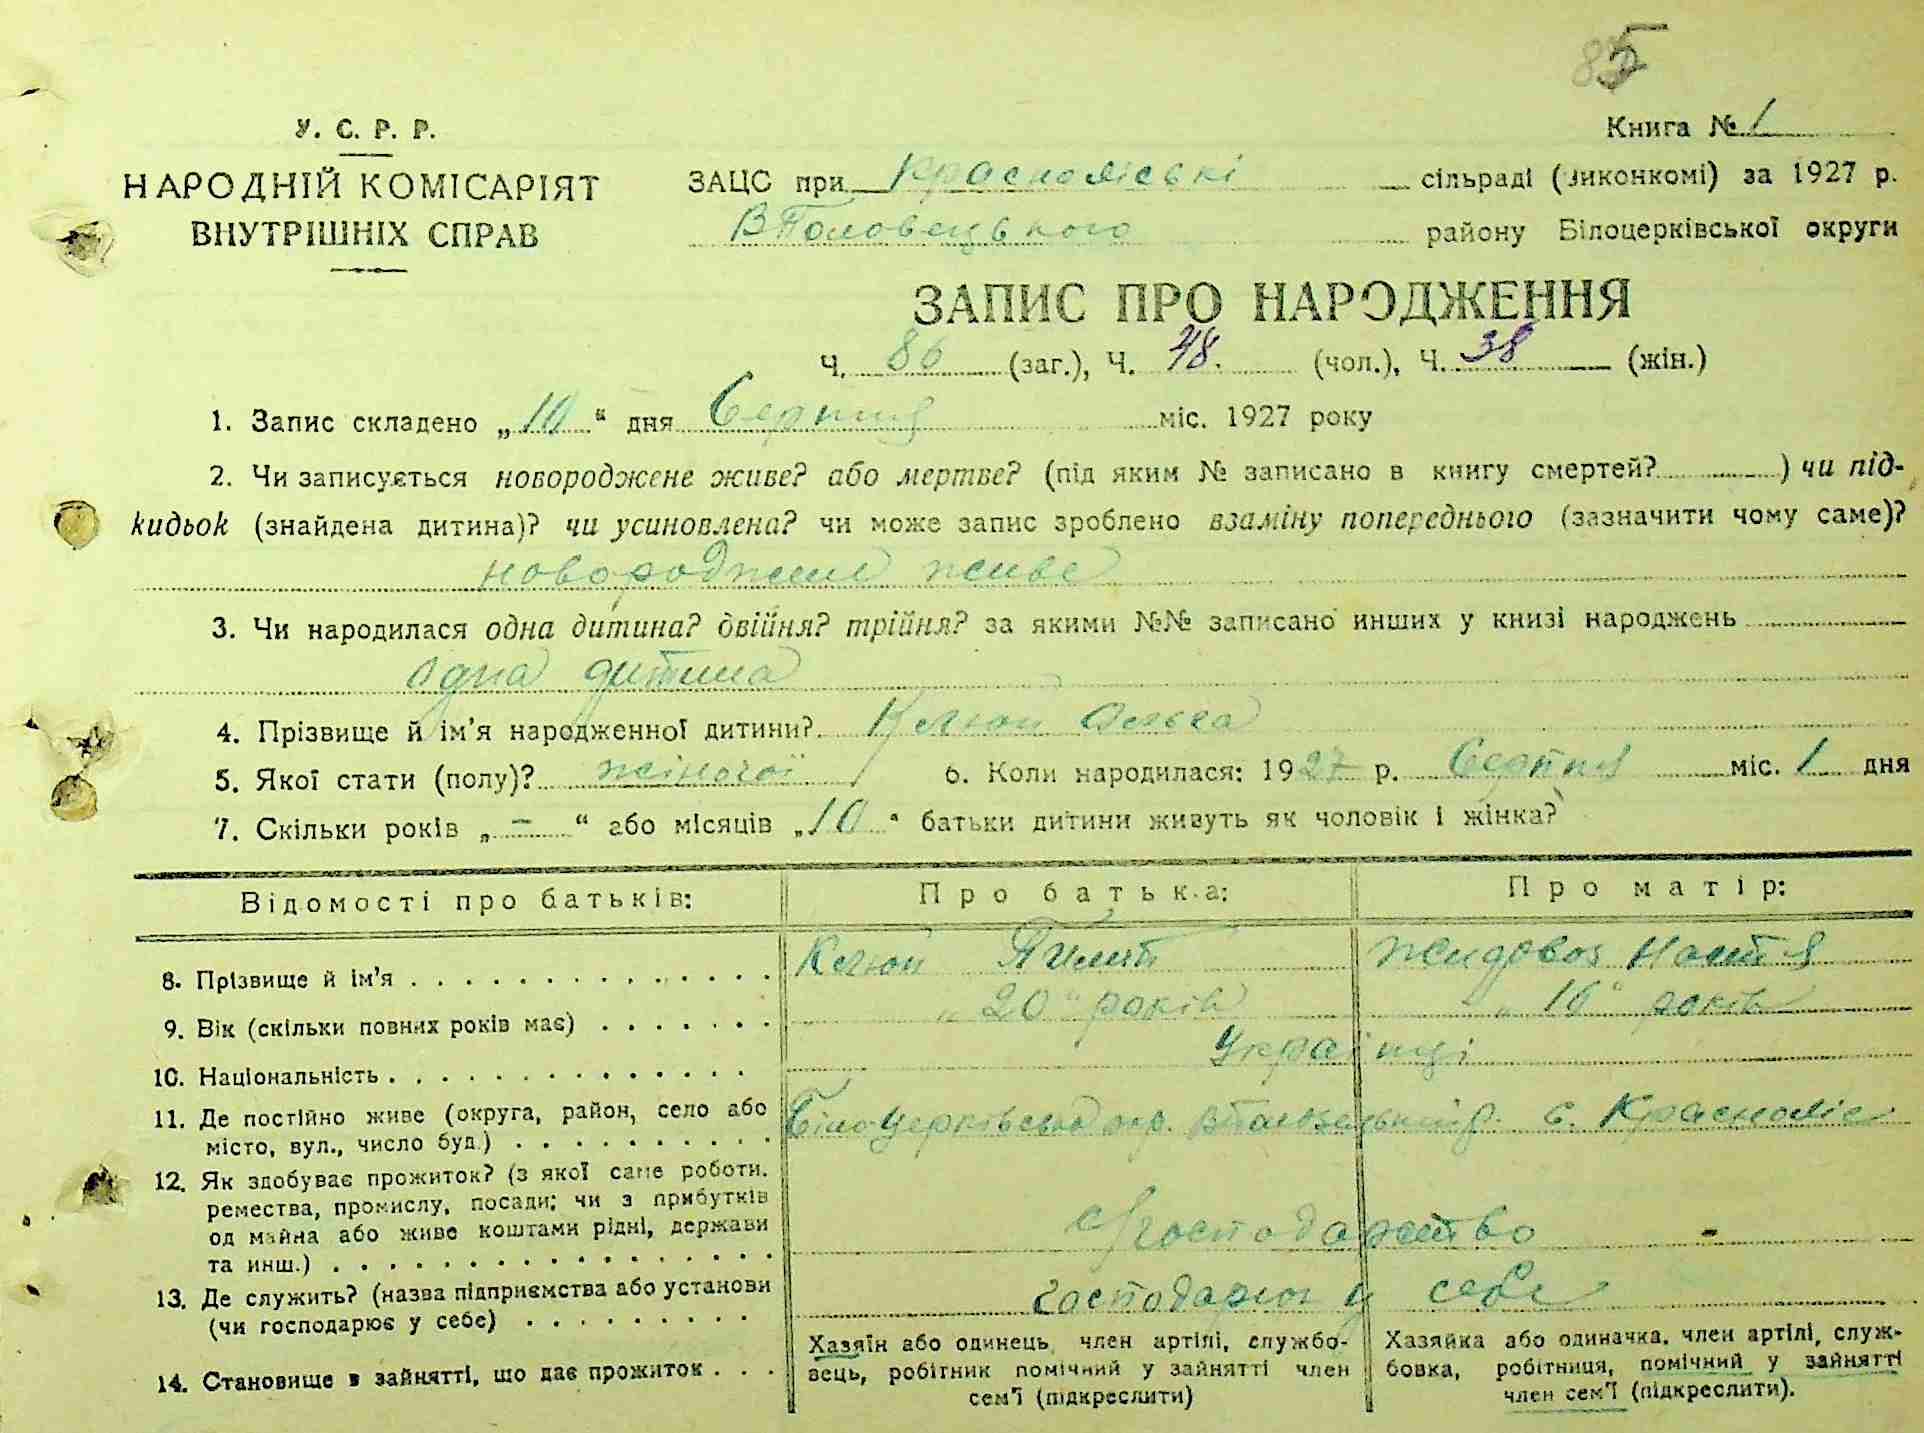 85
У. С. Р. Р.
НАРОДНІЙ КОМІСАРІЯТ
ВНУТРІШНІХ СПРАВ
Книга № 1
ЗАЦС при Краснолісські сільраді (виконкомі) за 1927 р.
ВПоловецького району Білоцерківської округи
ЗАПИС ПРО НАРОДЖЕННЯ
Ч. 86 (заг.), Ч. 48. (чол.), Ч. 38 (жін.)
1. Запис складено „10“ дня Серпня міс. 1927 року
2. Чи записується новороджене живе? або мертве? (під яким № записано в книгу смертей? ) чи під-
кидьок (знайдена дитина)? чи усиновлена? чи може запис зроблено взаміну попереднього (зазначити чому саме)?
новороджене живе
3. Чи народилася одна дитина? двійня? трійня? за якими №№ записано инших у книзі народжень
одна дитина
4. Прізвище й ім'я народженної дитини? Ольга
5. Якої стати (полу)? жіночої 6. Коли народилася: 1927 р. Серпня міс. 1 дня
7. Скільки років „ – “ або місяців „10“ батьки дитини живуть як чоловік і жінка?
Відомості про батьків: Про батька: Про матір:
8. Прізвище й ім'я Пилип Настя
9. Вік (скільки повних років має) „20“ років років
10. Національність Українці
11. Де постійно живе (округа, район, село або Білоцерківська окр. с. Красноліс
місто, вул., число буд.)
12. Як здобуває прожиток? (з якої саме роботи,
ремества, промислу, посади; чи з прибутків
од майна або живе коштами рідні, держави господарство -
та инш.)
13. Де служить? (назва підприємства або установи господарює у себе
(чи господарює у себе)
14. Становище в зайнятті, що дає прожиток
Хазяїн або одинець, член артілі, службо-
вець, робітник помічний у зайнятті член
сем'ї (підкреслити)
Хазяйка або одиначка, член артілі, служ-
бовка, робітниця, помічний у зайнятті
член сем'ї (підкреслити).